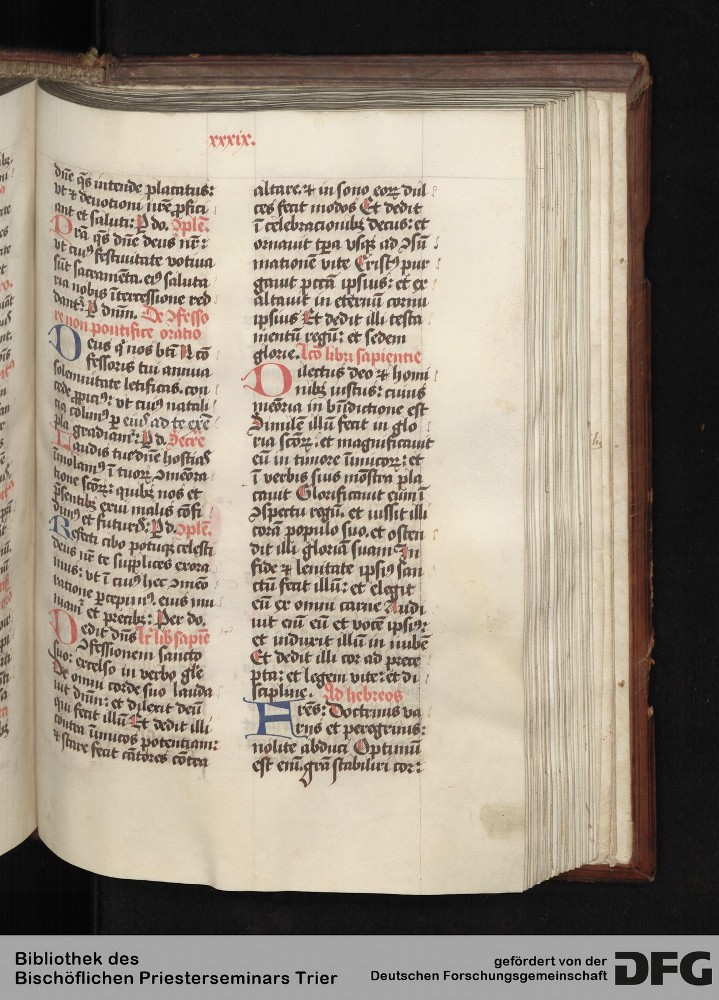 xxxix.
dūe q̄s intende placatus:
vt ⁊ deuotioni nr̄e ꝓfici
ant et saluti: P do. Ꝯplēd.
Orā q̄s dn̄e deus nr̄:
vt cuiꝰ festiuitate votiua
sūt sacramēta. eiꝰ saluta
ria nobis ītercessione red
dant̄: P dnm̄. De ꝯfesso
re non pontifice oratio
Deus qͥ nos bt̄i N cō
fessoris tui annua
solennitate letificas. con
cede ꝓpiciꝰ: vt cuiꝰ natali
cia colimꝰ ꝑ eiusꝰ ad te exē
pla gradiamr̄: P d. Secrē
Laudis tue dn̄e hostias
īmolamꝰ ī tuoꝝ ꝯmēora
tione scōꝝ: quibꝫ nos et
p̄sentibꝫ exui malis cōfi
dimꝰ et futuris: P d. Ꝯplēd.
Refecti cibo potuqꝫ celesti
deus nr̄ te supplices exora
mus: vt ī cuiꝰ hec ꝯmēo
ratione percepimꝰ. eius mu
niamr̄ et precibꝫ: Per do.
Dedit dn̄s Lc̄ libͥ sapiē
ꝯfessionem sancto
suo: excelso in verbo glīe
De omni corde suo lauda
uit dnm̄: et dilexit deū
qui fecit illū Et dedit illi
contra īimicos potentiam:
⁊ stare fecit cātores cōtra
altare. ⁊ in sono eoꝝ dul
ces fecit modos Et dedit
ī celebracionibꝫ decus: et
ornauit tp̄a vsqꝫ ad ꝯsū
mationē vite Cristꝰ pur
gauit pctā ipsius: et ex
altauit in eternū cornu
ipsius Et dedit illi testa
mentū regū: et sedem
glorie. Lcō libri sapientie
Dilectus deo ⁊ homi
nibꝫ iustus: cuius
meōria in bn̄dictione est
Similē illū fecit in glo
ria scōꝝ. et magnificauit
eū in timore īimicoꝝ: et
ī verbis suis mōstra pla
cauit Glorificauit eum ī
ꝯspectu regū. et iussit illi
corā populo suo. et osten
dit illi gloriā suam In
fide ⁊ lenitate ipsiꝰ san
ctū fecit illū: et elegit
eū ex omni carne Audi
uit eni eū et vocē ipsiꝰ:
et induxit illū in nubē
Et dedit illi cor ad prece
pta: et legem vite: et di
scipline. Ad hebreos
Frēs: Doctrinis va
rijs et peregrinis:
nolite abduci Optimū
est eni. grā stabiliri cor:
Bibliothek des
Bischöflichen Priesterseminars Trier
gefördert von der
Deutschen Forschungsgemeinschaft
DFG